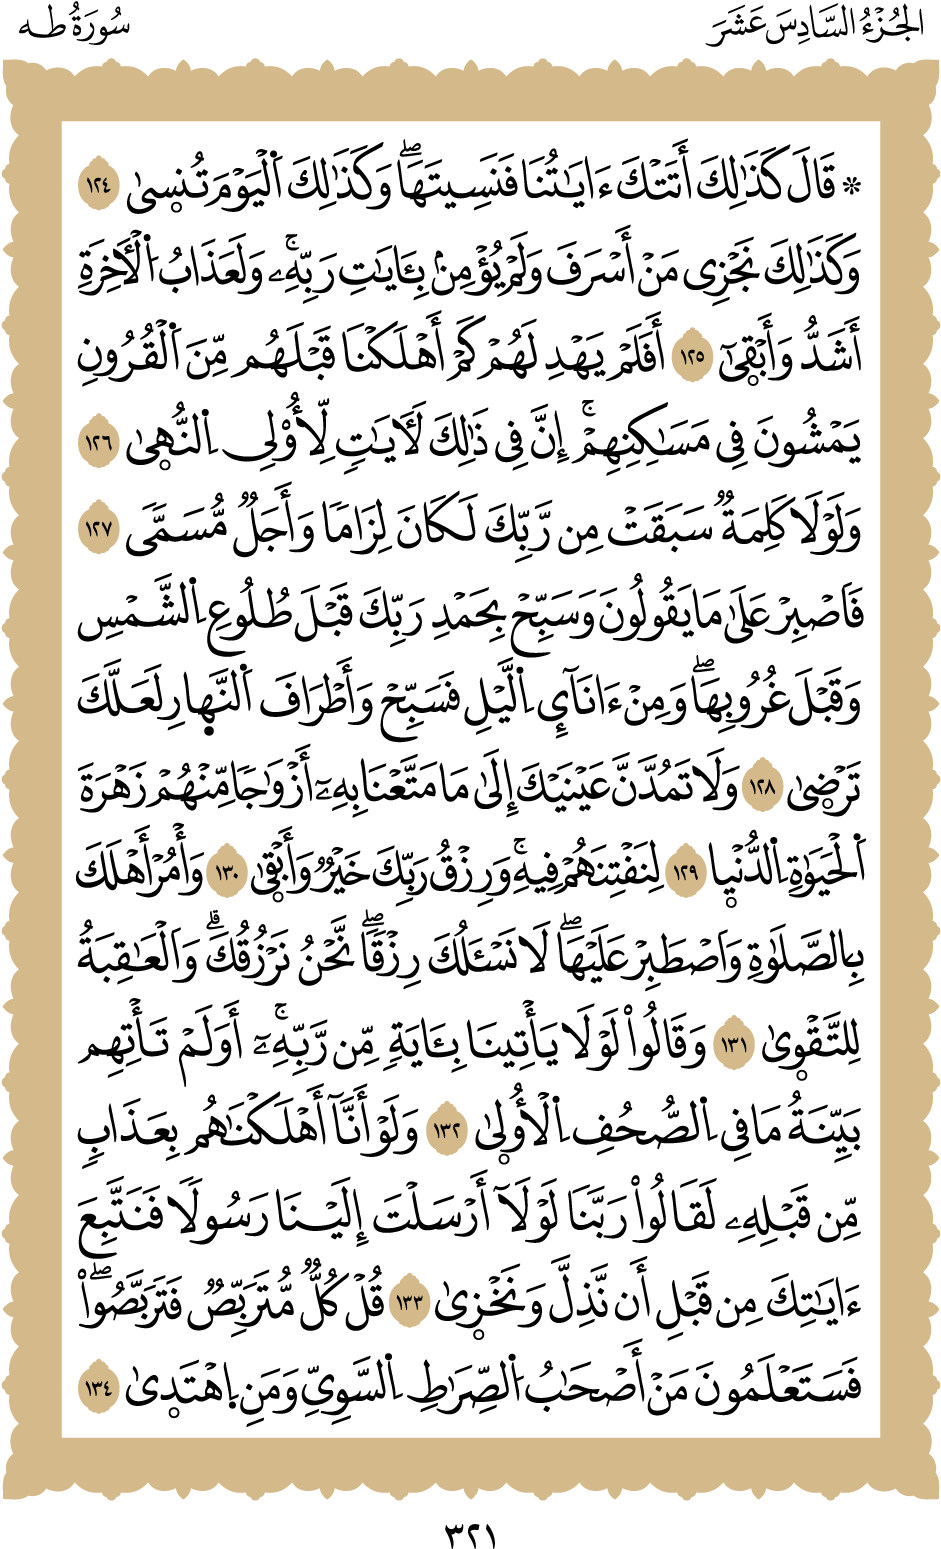 الجُزْءُ السَّادِسَ عَشَرَ
سُورَةُ طه
۞ قَالَ كَذَٰلِكَ أَتَتْكَ ءَايَٰتُنَا فَنَسِيتَهَاۖ وَكَذَٰلِكَ اَ۬لْيَوْمَ تُنس۪ىٰ ١٢٤
وَكَذَٰلِكَ نَجْزِى مَنْ أَسْرَفَ وَلَمْ يُؤْمِنۢ بِـَٔايَٰتِ رَبِّهِۦۚ وَلَعَذَابُ اُ۬لْأٓخِرَةِ
أَشَدُّ وَأَبْق۪ىٰٓ ١٢٥ أَفَلَمْ يَهْدِ لَهُمْ كَمْ أَهْلَكْنَا قَبْلَهُم مِّنَ اَ۬لْقُرُونِ
يَمْشُونَ فِى مَسَٰكِنِهِمْۚ إِنَّ فِى ذَٰلِكَ لَأٓيَٰتٖ لِّأُوْلِى اِ۬لنُّه۪ىٰ ١٢٦
وَلَوْلَا كَلِمَةٞ سَبَقَتْ مِن رَّبِّكَ لَكَانَ لِزَامٗا وَأَجَلٞ مُّسَمّٗى ١٢٧
فَاصْبِرْ عَلَىٰ مَا يَقُولُونَ وَسَبِّحْ بِحَمْدِ رَبِّكَ قَبْلَ طُلُوعِ اِ۬لشَّمْسِ
وَقَبْلَ غُرُوبِهَاۖ وَمِنْ ءَانَآيِٕ اِ۬لَّيْلِ فَسَبِّحْ وَأَطْرَافَ اَ۬لنَّه۪ارِ لَعَلَّكَ
تَرْض۪ىٰ ١٢٨ وَلَا تَمُدَّنَّ عَيْنَيْكَ إِلَىٰ مَا مَتَّعْنَا بِهِۦٓ أَزْوَٰجٗا مِّنْهُمْ زَهْرَةَ
اَ۬لْحَيَوٰةِ اِ۬لدُّنْي۪ا ١٢٩ لِنَفْتِنَهُمْ فِيهِۚ وَرِزْقُ رَبِّكَ خَيْرٞ وَأَبْق۪ىٰ ١٣٠ وَأْمُرْ أَهْلَكَ
بِالصَّلَوٰةِ وَاَصْطَبِرْ عَلَيْهَاۖ لَا نَسْـَٔلُكَ رِزْقٗاۖ نَّحْنُ نَرْزُقُكَۗ وَالْعَٰقِبَةُ
لِلتَّقْو۪ىٰ ١٣١ وَقَالُواْ لَوْلَا يَأْتِينَا بِـَٔايَةٖ مِّن رَّبِّهِۦٓۚ أَوَلَمْ تَأْتِهِم
بَيِّنَةُ مَا فِى اِ۬لصُّحُفِ اِ۬لْأُول۪ىٰ ١٣٢ وَلَوْ أَنَّآ أَهْلَكْنَٰهُم بِعَذَابٖ
مِّن قَبْلِهِۦ لَقَالُواْ رَبَّنَا لَوْلَآ أَرْسَلْتَ إِلَيْنَا رَسُولٗا فَنَتَّبِعَ
ءَايَٰتِكَ مِن قَبْلِ أَن نَّذِلَّ وَنَخْز۪ىٰ ١٣٣ قُلْ كُلّٞ مُّتَرَبِّصٞ فَتَرَبَّصُواْۖ
فَسَتَعْلَمُونَ مَنْ أَصْحَٰبُ اُ۬لصِّرَٰطِ اِ۬لسَّوِىِّ وَمَنِ اِ۪هْتَد۪ىٰ ١٣٤
٣٢١